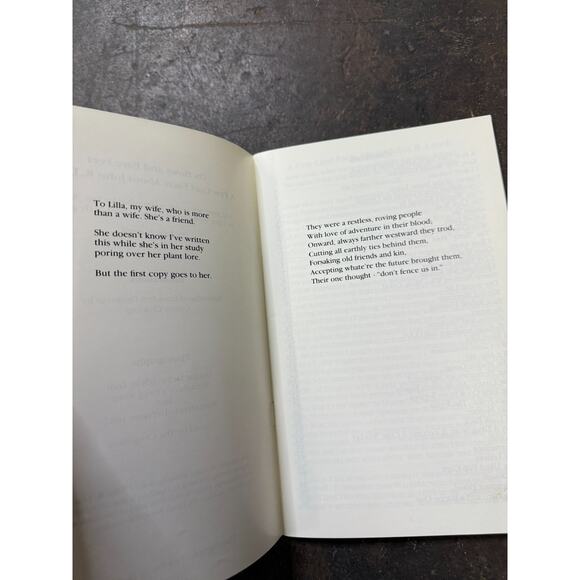 To Lilla, my wife, who is more
than a wife. She's a friend.
She doesn't know I've written
this while she's in her study
poring over her plant lore.
But the first copy goes to her.
They were a restless, roving people
With love of adventure in their blood;
Onward, always farther westward they trod,
Cutting all earthly ties behind them,
Forsaking old friends and kin,
Accepting whate're the future brought them,
Their one thought - "don't fence us in."